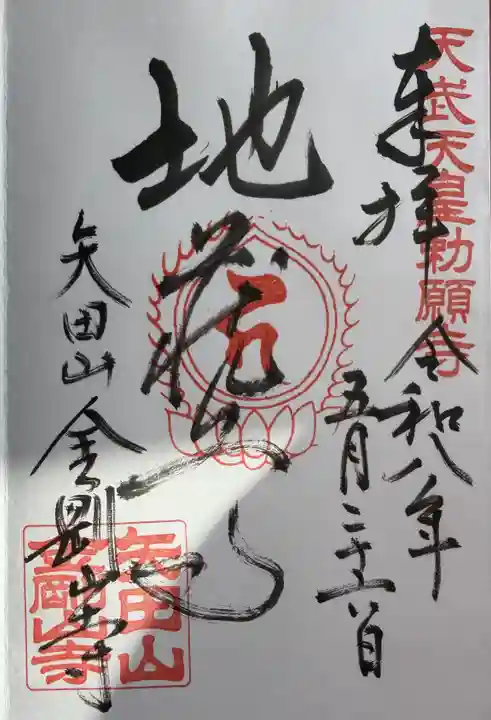 天武天皇勅願寺
奉拝
令和八年
五月二十六日
地蔵心
矢田山金剛山寺
矢田山
金剛山寺